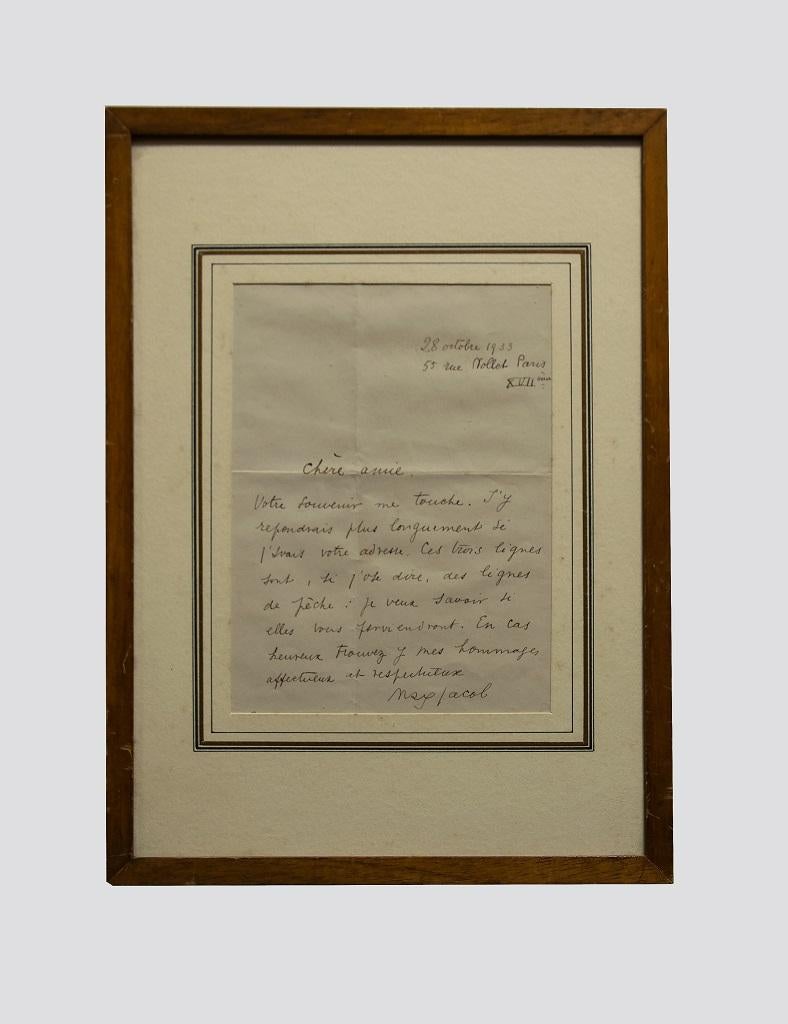 28 octobre 1933
55 rue Nollet Paris
XVII ème
Chère amie.
Votre souvenir me touche. J'y
repondrais plus longuement si
j'avais votre adresse. Ces trois lignes
sont, si j'ose dire, des lignes
de pêche : je veux savoir si
elles vous parviendront. En cas
heureux trouvez y mes hommages
affectueux et respectueux
Max Jacob